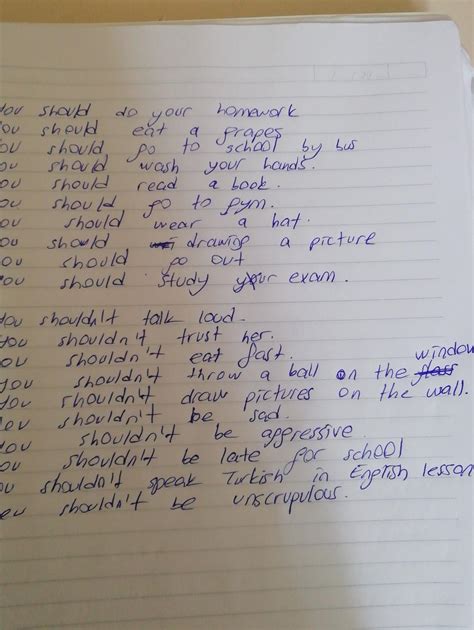 You should do your homework
ou should eat a grapes
ou should go to school by bus
ou should wash your hands.
ou should read a book.
ou should go to gym.
ou should wear a hat.
ou should drawing a picture
ou should go out
ou should study your exam.
You shouldn't talk loud.
you shouldn't trust her.
ou shouldn't eat fast.
you shouldn't throw a ball on the window
you shouldn't draw pictures on the wall.
ou shouldn't be sad.
ou shouldn't be aggressive.
ou shouldn't be late for school
ou shouldn't speak Turkish in English lesson
ou shouldn't be unscrupulous.